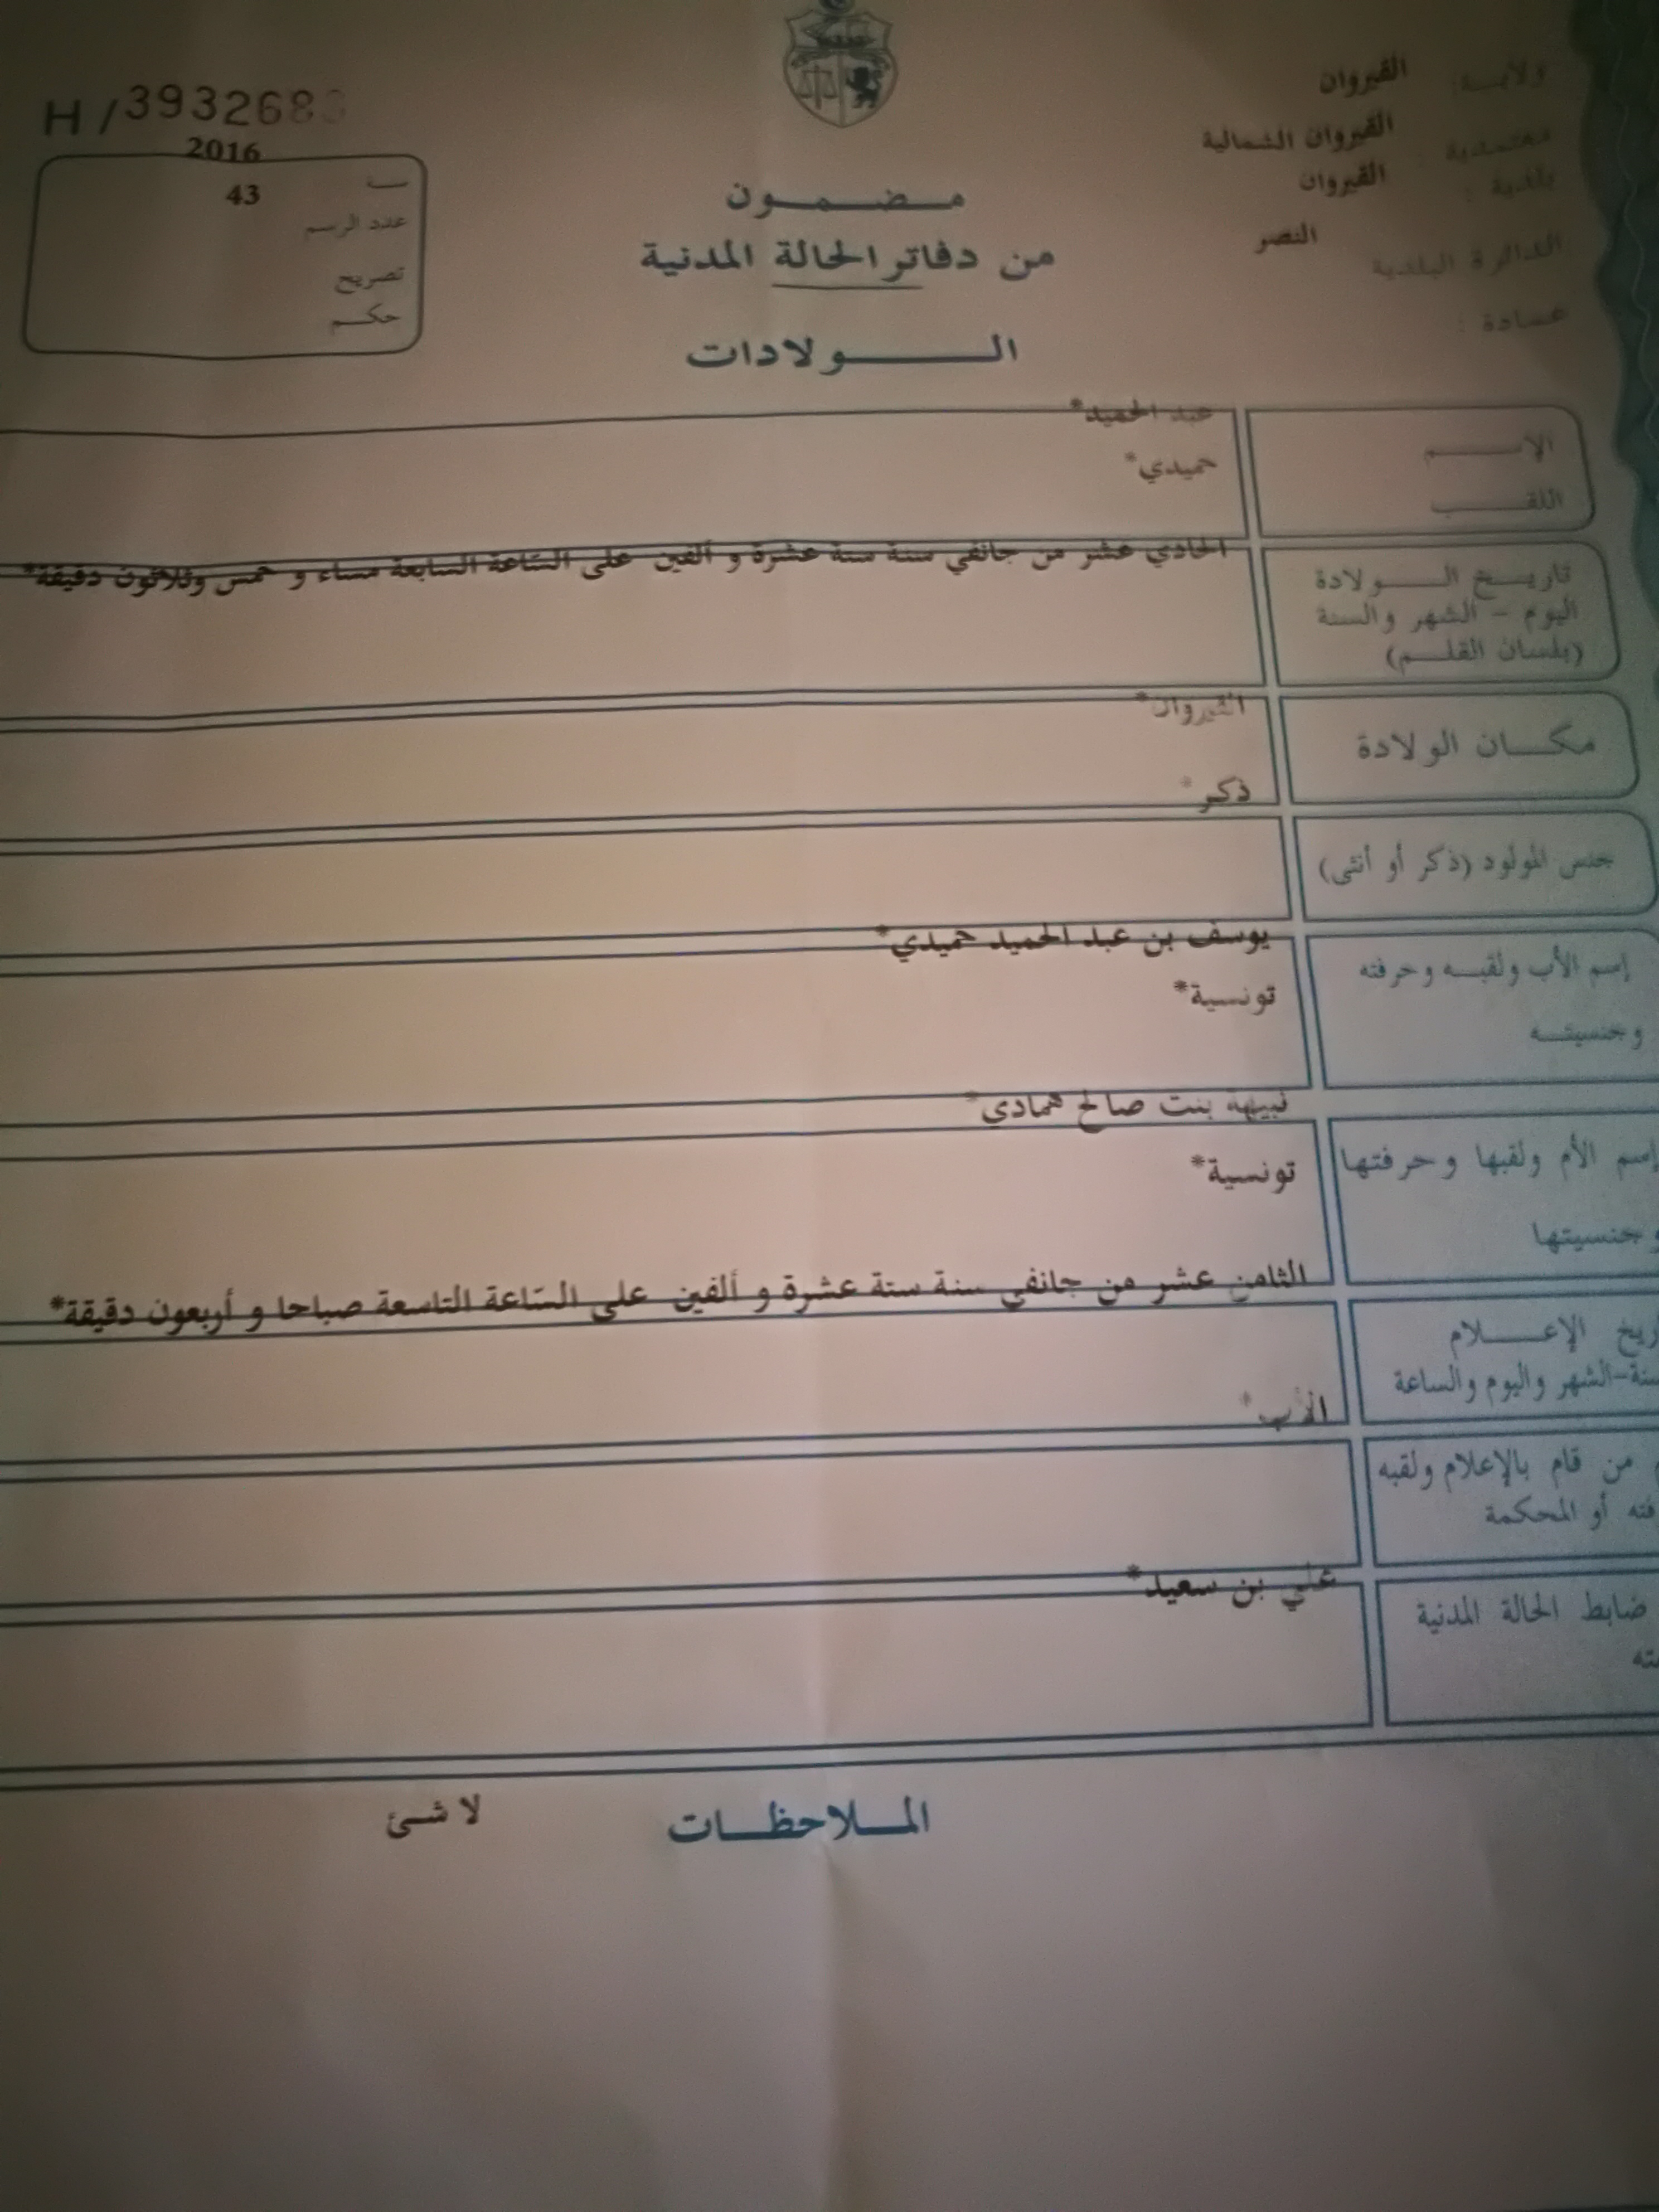 H/3932683
2016
سنة
43
عدد الرسم
تصريح
حكم
ولاية: القيروان
معتمدية: القيروان الشمالية
بلدية: القيروان
الدائرة البلدية النصر
عمادة:
مضمون
من دفاتر الحالة المدنية
الولادات
عبد الحميد*
الإسم
حميدي*
اللقب
الحادي عشر من جانفي سنة ستة عشرة و ألفين على السّاعة السابعة مساء و خمس وثلاثون دقيقة*
تاريخ الولادة
اليوم - الشهر والسنة
(بلسان القلم)
القيروان*
مكان الولادة
ذكر*
جنس المولود (ذكر أو أنثى)
يوسف بن عبد الحميد حميدي*
إسم الأب ولقبه وحرفته
تونسية*
وجنسيته
نبيهة بنت صالح همادي*
إسم الأم ولقبها وحرفتها
تونسية*
وجنسيتها
الثامن عشر من جانفي سنة ستة عشرة و ألفين على السّاعة التاسعة صباحا و أربعون دقيقة*
ريخ الإعلام
سنة-الشهر واليوم والساعة
الأب*
من قام بالإعلام ولقبه
فته أو المحكمة
علي بن سعيد*
ضابط الحالة المدنية
الملاحظات لا شئ